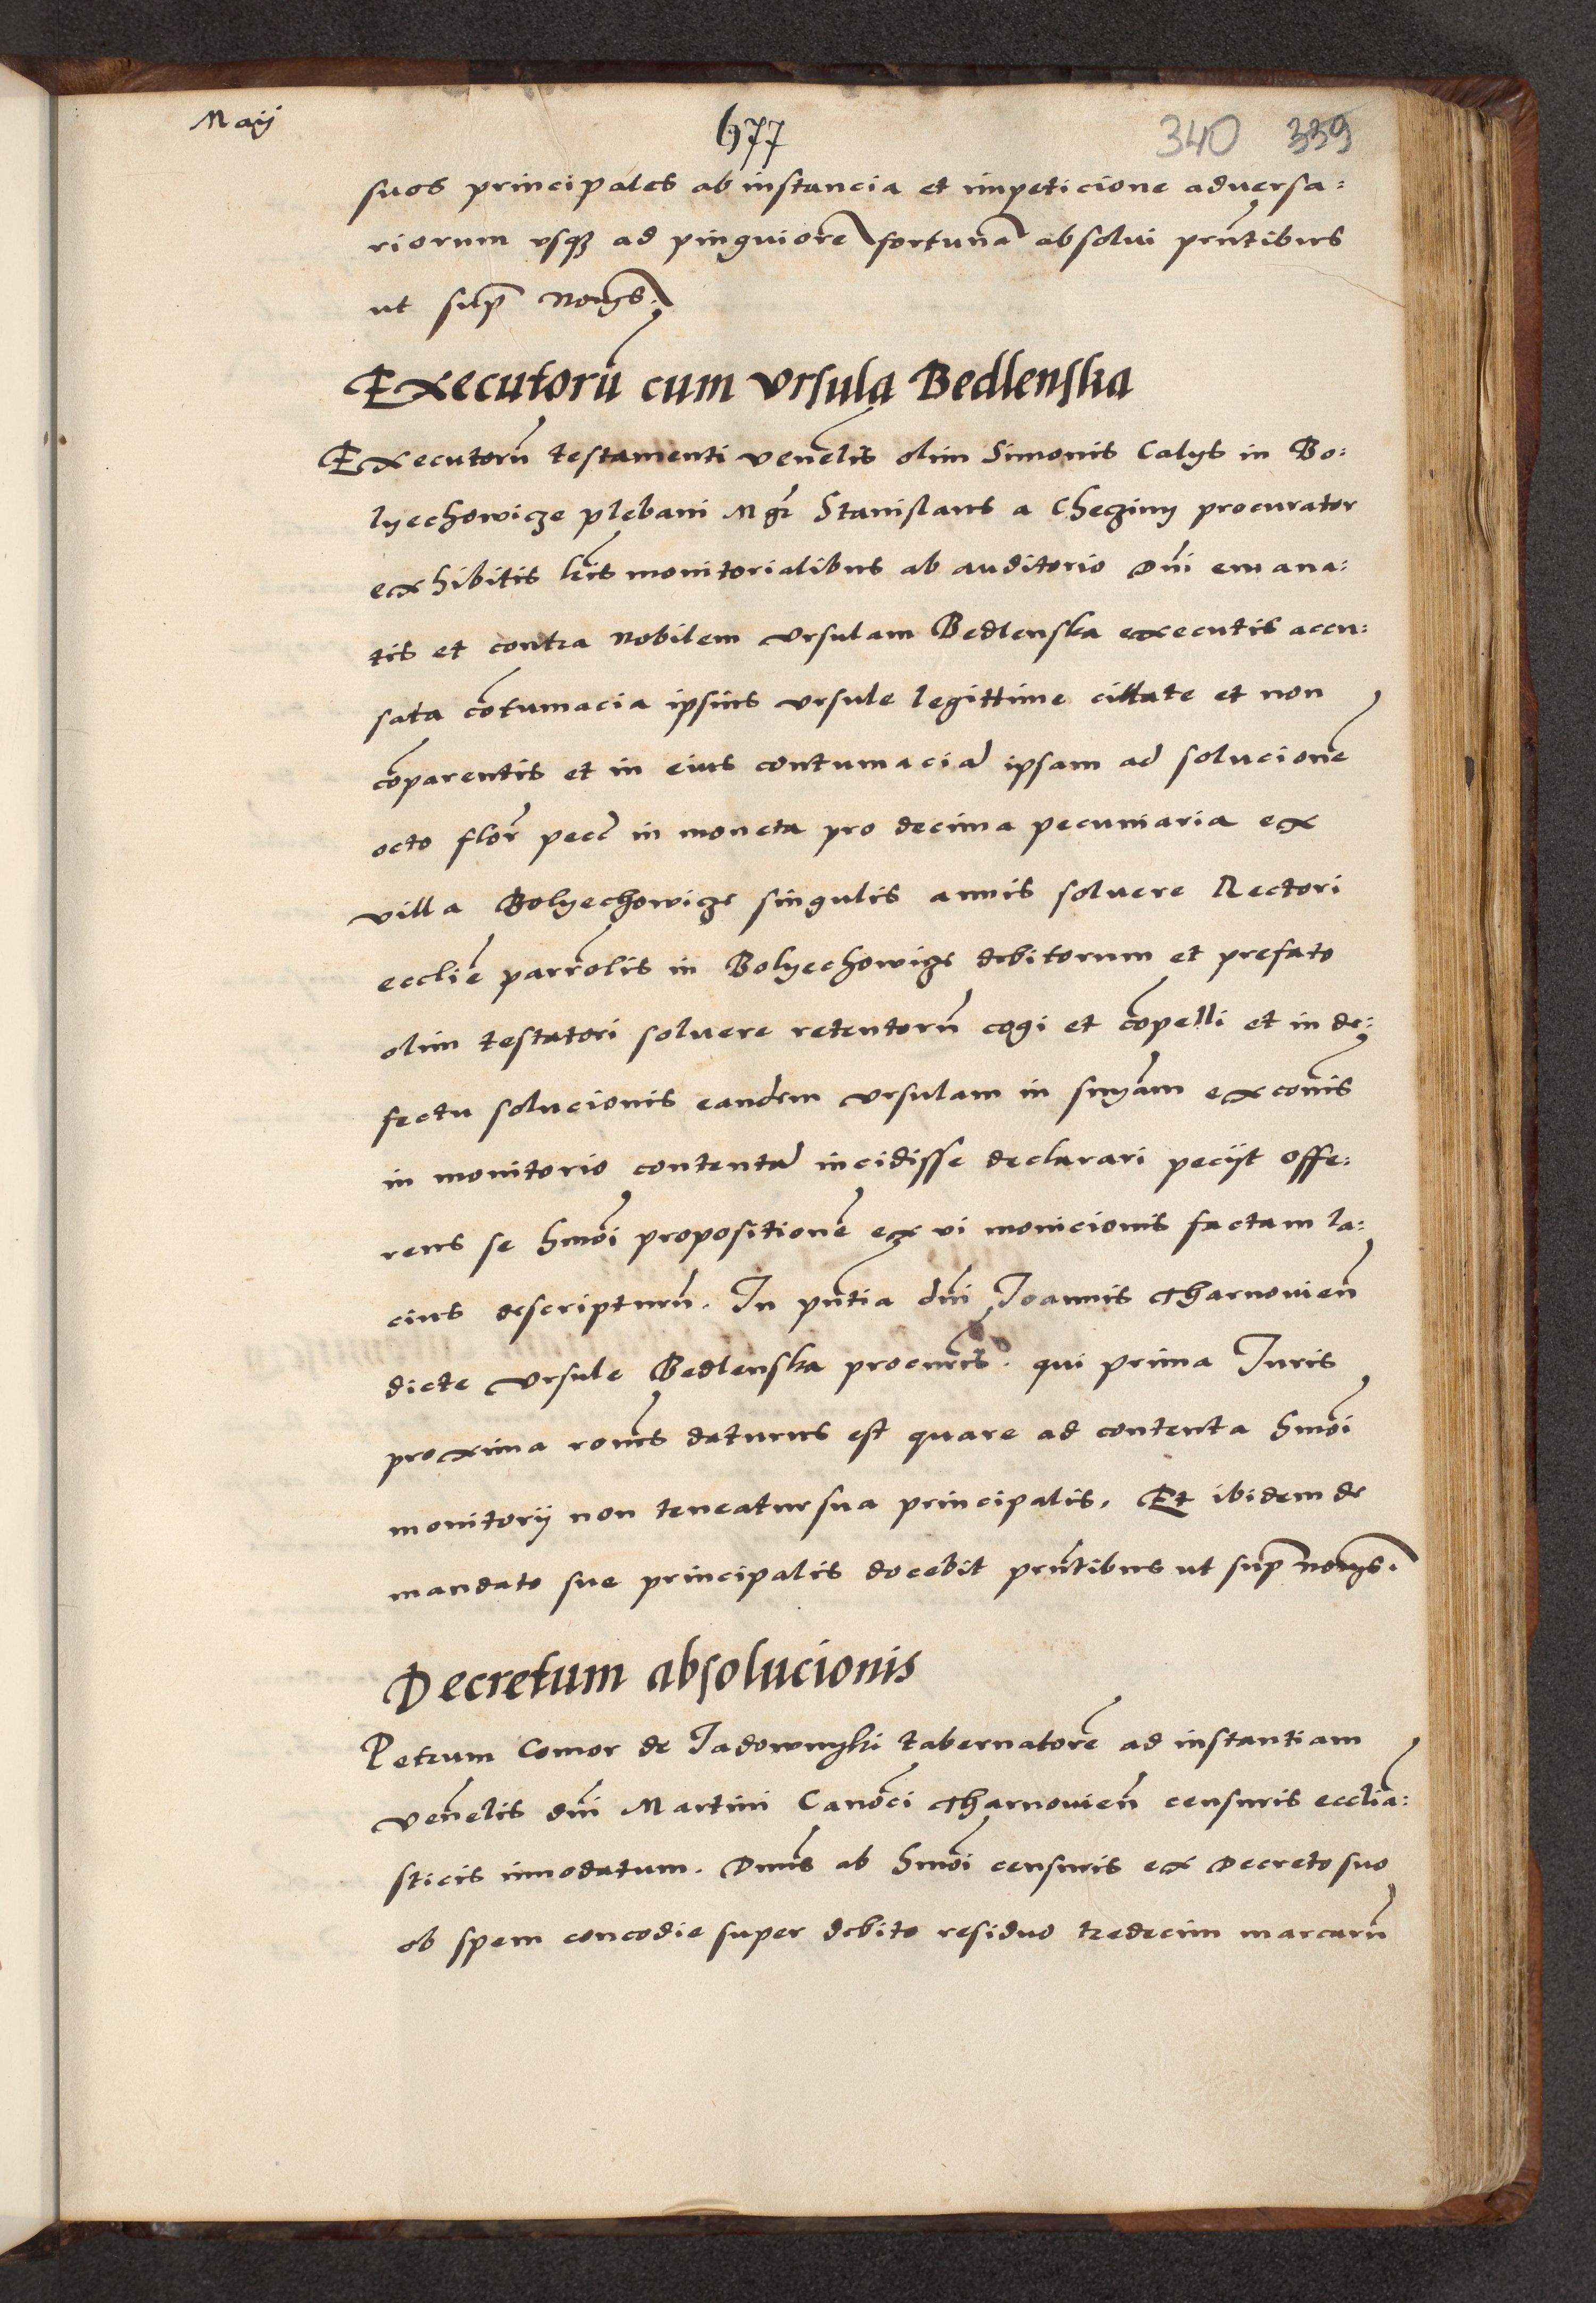 Maij
677
340 339
suos principales ab instancia et impeticione adversa:
riorum usq3 ad pinguiorē fortunā absolui pr̄ntibus
ut sup̄ nōīs.
Executorū cum Vrsula Bedlenska
Executorū testamenti venēlis olim Simonis Calys in Bo:
lyechowicze plebani Mgr̄ Stanislaus a Cheginy procurator
exhibitis lr̄is monitorialibus ab auditorio Dn̄i emana:
tis et contra Nobilem Vrsulam Bedlenska executis accu:
sata cōtumacia ipsius Vrsule legittime cittate et non
cōparentis et in eius contumaciā ipsam ad solucionē
octo flor̄ pecc̄ in moneta pro decima pecuniaria ex
villa Bolyechowicze singulis annis soluere Rectori
ecclīe parrōlis in Bolyechowicze debitorum et prefato
olim testatori soluere retentorū cogi et cōpelli et in de:
fectu solucionis eandem Vrsulam in sn̄iam excōīs
in monitorio contentā incidisse declarari peciit offe:
rens se hmōi propositionē ex vi monicionis factam la:
cius descripturū. In pn̄tia dn̄i Joannis Tharnouien̄
dicte Vrsule Bedlenska procur̄is. qui prima Juris
proxima rōnes daturus est quare ad contenta hmōi
monitorij non teneatur sua principalis. Et ibidem de
mandato sue principalis docebit pr̄ntibus ut sup̄ nōīs.
Decretum absolucionis
Petrum Comor de Jadownyki tabernatorē ad instantiam
venēlis dn̄i Martini Canōci Tharnouien̄ censuris ecclīa:
sticis innodatum. Dn̄us ab hmōi censuris ex Decreto suo
ob spem concodie super debito residuo tredecim marcarū